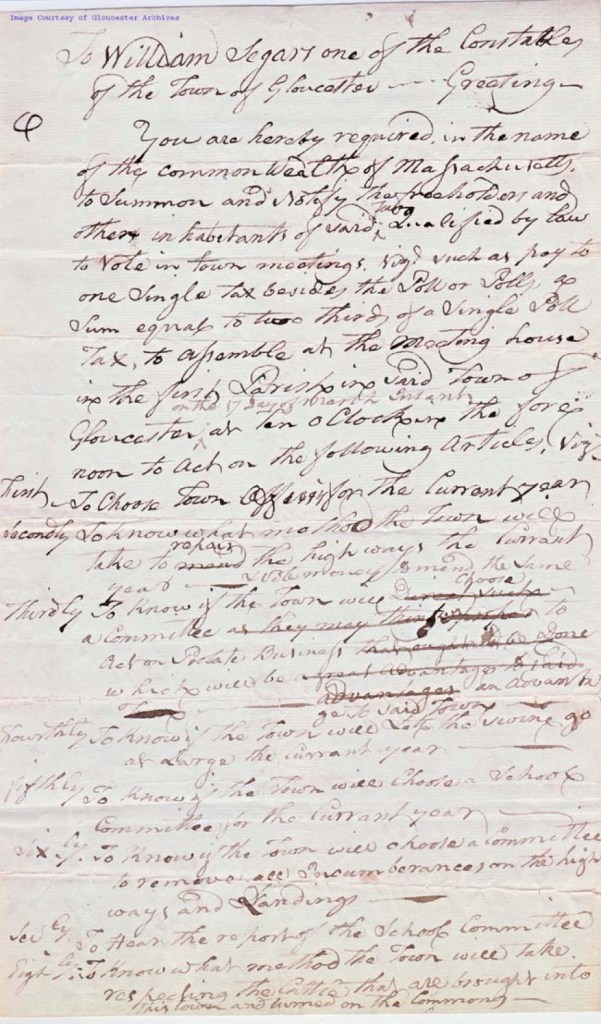 Image Courtesy of Gloucester Archives
To William Segars one of the Constables
of the Town of Gloucester Greeting
You are hereby required in the name
of the common Wealth of Massachusetts,
to Summon and Notify the freeholders and
other inhabitants of said Town Qualified by law
to Vote in town meetings, Viz. such as pay to
one Single Tax besides the Poll or Polls, a
Sum equal to two thirds of a Single Poll
Tax, to assemble at the Meeting house
in the first Parish in said Town of
on the 17 Day of March Instant
Gloucester, at Ten o Clock in the fore
noon to Act on the following Articles, Viz
First To Choose Town Officers for the Currant year
Secondly To know what method the Town will
take to mend repair the high ways the Currant
year Vote money & mend the same
Thirdly To know if the Town will choose
a Committee as they may think proper to
Act on Business that ought to be done
which will be great advantage to said
advantages an advanta
ge to said Town
Fourthly To know if the Town will Let the swine go
at Large the Currant year
fifthly To know if the Town will Choose a School
Committee for the Currant year
Sixly. To know if the Town will choose a Committee
to remove all Incumberances on the high
ways and Landings
Sevly To Hear the report of the School Committee
Eightly: To Know what method the Town will take
respecting the Cattle that are brought into
this town and turned on the Commons